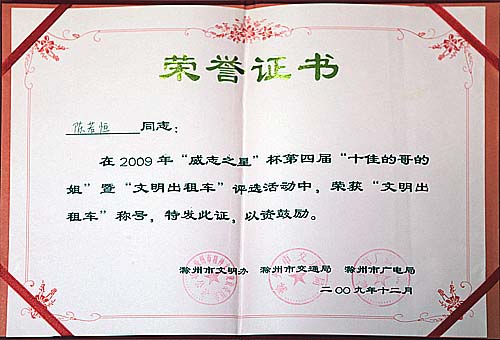 荣誉证书
陈若恒 同志：
在2009年“威志之星”杯第四届“十佳的哥的
姐”暨“文明出租车”评选活动中，荣获“文明出
租车”称号，特发此证，以资鼓励。
滁州市文明办 滁州市交通局 滁州市广电局
二00九年十二月